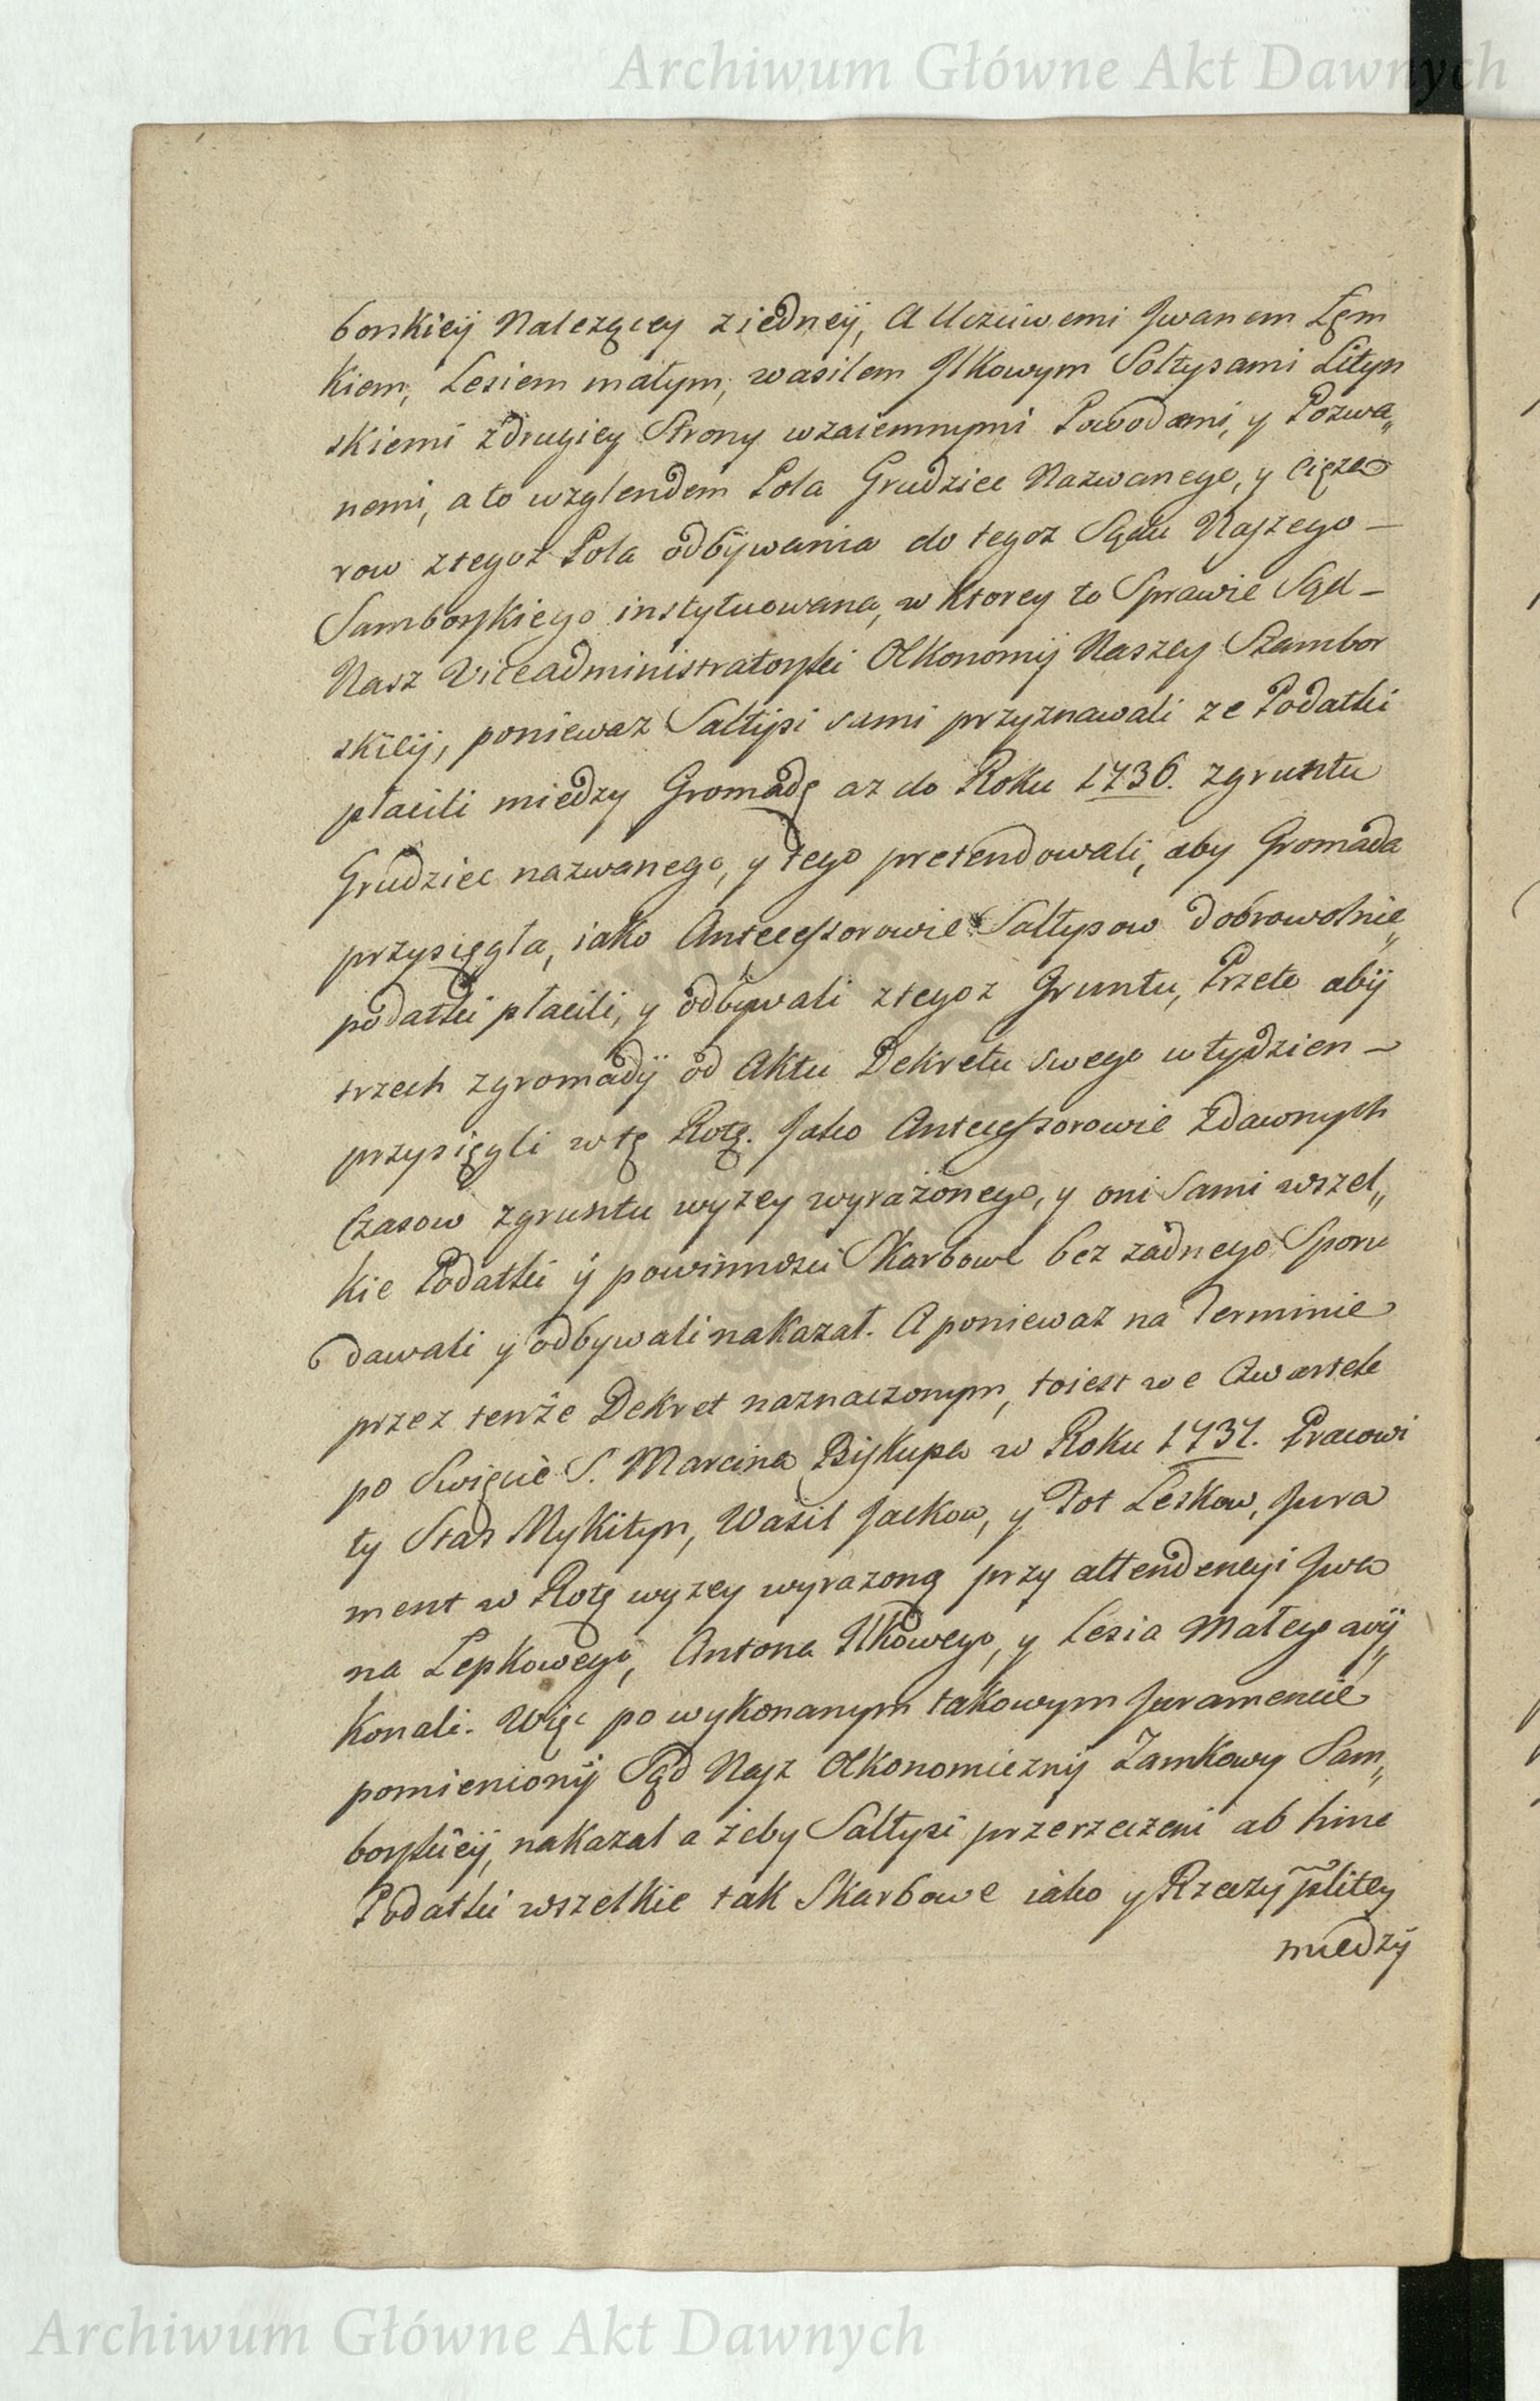 Archiwum Główne Akt Dawnych
borskieÿ Należącey z iedneÿ, A Uczciwemi Jwanem Łęm
kiem, Lesiem małym, wasilem Jlkowym Sołtysami Lityn
skiemi z drugiey Strony wzaiemnymi Powodami, y Pozwa„
nemi, a to wzglendem Pola Grudziec Nazwanego, y Cięża
row z tegoż Pola odbÿwania do tegoz Sądu Naszego –
Samborskiego instytuowana, w ktorey to Sprawie Sąd –
Nasz Viceadministratorski Olkonomÿ Naszey Sambor
skieÿ, poniewaz Sałtÿsi sami przyznawali ze Podatki
płacili miedzy Gromadę az do Roku 1736. z gruntu
Grudziec nazwanego, y tego pretendowali, aby Gromada
przysięgła, iako Antecessorowie Sałtysow dobrowolnie„
podatki płacili, y odbÿwali z tegoz Gruntu, Przeto abÿ
trzech z gromadÿ od Aktu Dekretu swego w tydzien –
przysięgli w tę Rotę. Jako Antecessorowie z dawnych
Czasow z gruntu wyzey wyrażonego, y oni Sami wszel„
kie Podatki ÿ powinnosci Skarbowe bez zadnego Sporu
dawali y odbywali nakazał. A ponieważ na Terminie
przez tenże Dekret naznaczonym, toiest we Czwartek
po Swięcie S. Marcina Biskupa w Roku 1737. Pracowi
ty Stas Mykityn, Wasil Jackow, y Fot Leskow, Jura
ment w Rotę wyzey wyrazoną przy attendencyi Jwa
na Lepkowego, Antona Ilkowego, y Lesia Małego wÿ„
konali. Więc po wykonanym takowym Juramencie
pomienionÿ Sąd Nasz Olkonomicznÿ Zamkowy Sam„
borskieÿ, nakazał a żeby Sałtysi przerzeczeni ab hinc
Podatki wszelkie tak Skarbowe iako y Rzeczy plitey
miedzÿ
Archiwum Główne Akt Dawnych